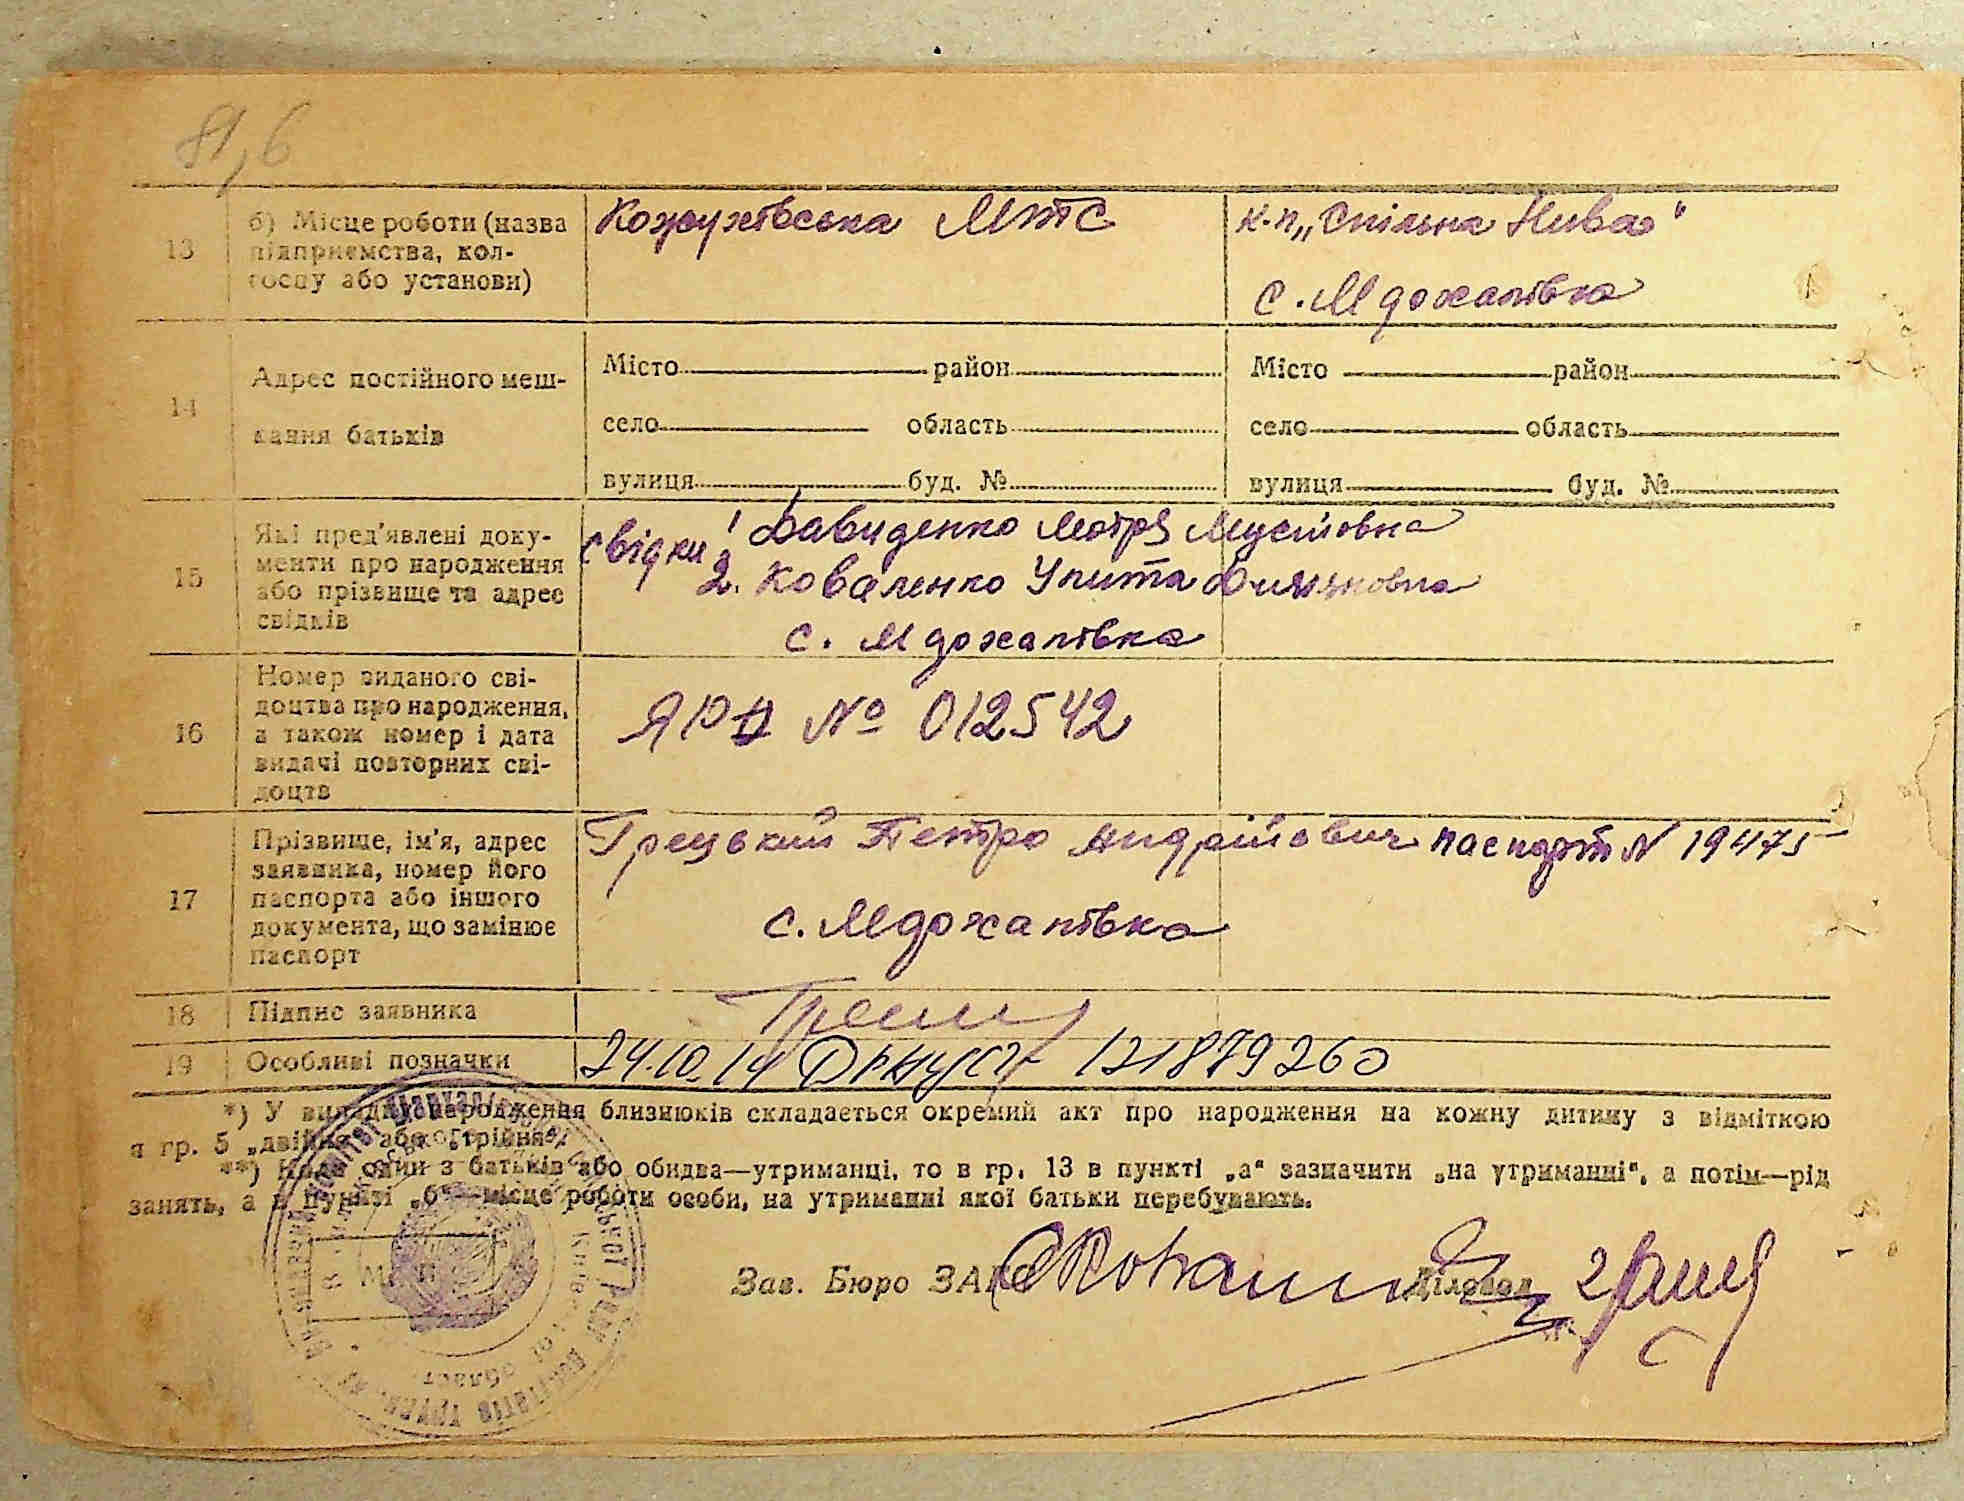 81,6
13 б) Місце роботи (назва підприємства, колгоспу або установи) Кожухівська МТС к-п „Спільна Нива"
с. Мдохалівка
14 Адрес постійного мешкання батьків
Місто район Місто район
село область село область
вулиця буд. № вулиця буд. №
15 Які пред'явлені документи про народження або прізвище та адрес свідків
свідки 1 Давиденко Мотря Мусіївна
2. Коваленко Улита
с. Мдохалівка
16 Номер виданого свідоцтва про народження, а також номер і дата видачі повторних свідоцтв
№ 012542
17 Прізвище, ім'я, адрес заявника, номер його паспорта або іншого документа, що замінює паспорт
Грецький Петро Андрійович паспорт N 19475
с. Мдохалівка
18 Підпис заявника
19 Особливі позначки 24.10.14 121879260
*) У випадку народження близнюків складається окремий акт про народження на кожну дитину з відміткою
я гр. 5 „двійня" або „трійня".
**) Коли один з батьків або обидва—утриманці, то в гр. 13 в пункті „а" зазначити „на утриманні", а потім—рід
занять, а в пункті „б"—місце роботи особи, на утриманні якої батьки перебувають.
Зав. Бюро ЗАГС Діловод